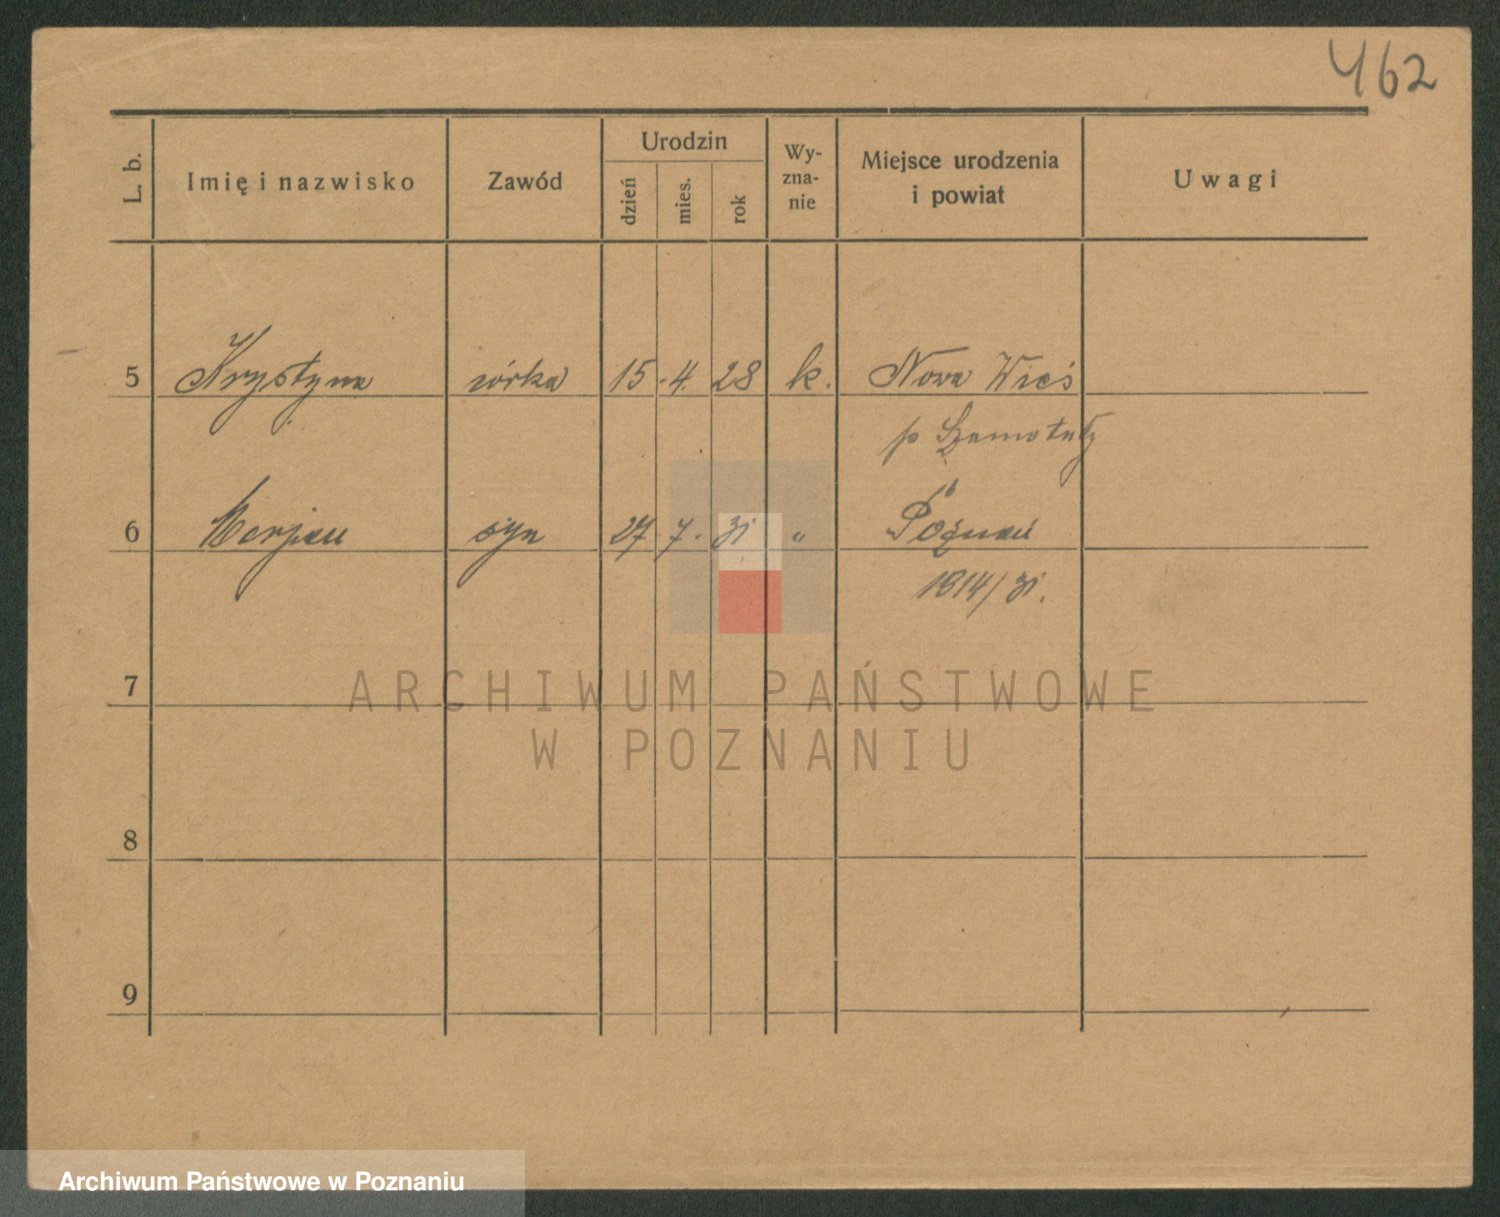 462
L. b.
Imię i nazwisko
Zawód
Urodzin
dzień
mies.
rok
Wy-
zna-
nie
Miejsce urodzenia
i powiat
Uwagi
5 Krystyna córka 15. 4. 28 k. Nowa Wieś
p Szamotuły
6 Marjan syn 27. 7. 31 " Poznań
1814/31.
7
ARCHIWUM PAŃSTWOWE
W POZNANIU
8
9
Archiwum Państwowe w Poznaniu